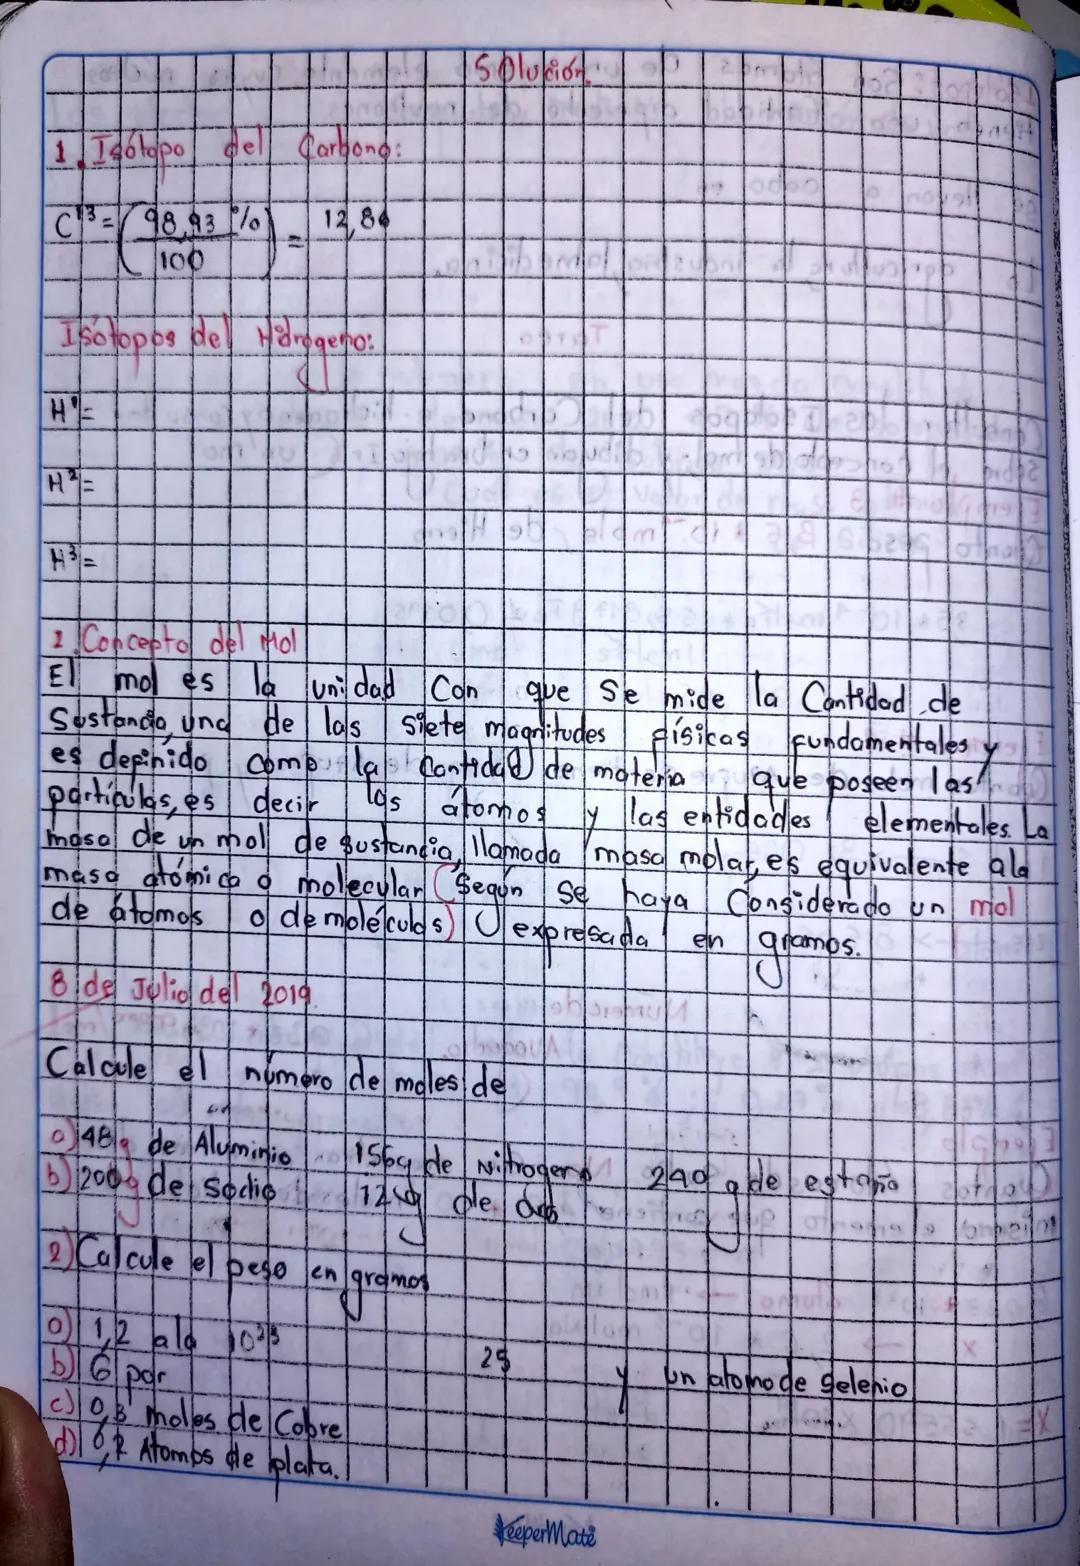 Solución.
1. Isótopo del Carbono:
C¹³ = (98,93 % / 100) = 12,86
Isótopos del Hidrogeno:
H¹ =
H² =
H³ =
2. Concepto del Mol
El mol es la unidad con que se mide la Cantidad de
Sustancia, una de las siete magnitudes físicas fundamentales y
es definido como la cantidad de materia que poseen las
partículas, es decir los átomos y las entidades elementales. La
masa de un mol de sustancia, llamada masa molar, es equivalente a la
masa atómica o molecular (Según se haya Considerado un mol
de átomos o de moléculas) expresada en gramos.
8 de Julio del 2019.
Calcule el número de moles de
a) 48g de Aluminio 156g de Nitrogeno 240 g de estaño
b) 200g de sodio 12 kg de
2) Calcule el peso en gramos
a) 1,2 a la 10²³
b) 6 por 25 y un atomo de selenio
c) 0,3 moles de Cobre
d) 6,2 Atomos de plata.
KeeperMate